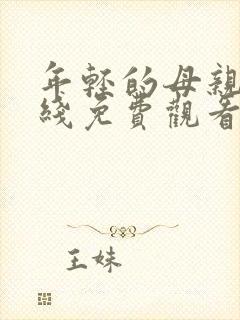 年轻的母亲
綫免費觀看
王妹